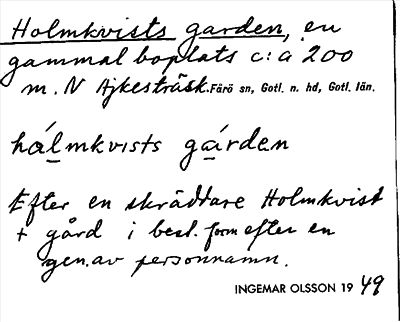 Holmkvists garden, en
gammal boplats c:a 200
m. N Ajkesträsk. Fårö sn, Gotl. n. hd, Gotl. län.
hálmkvısts gárden
Efter en skräddare Holmkvist
+ gård i best. form efter en
gen. av personnamn.
INGEMAR OLSSON 1949